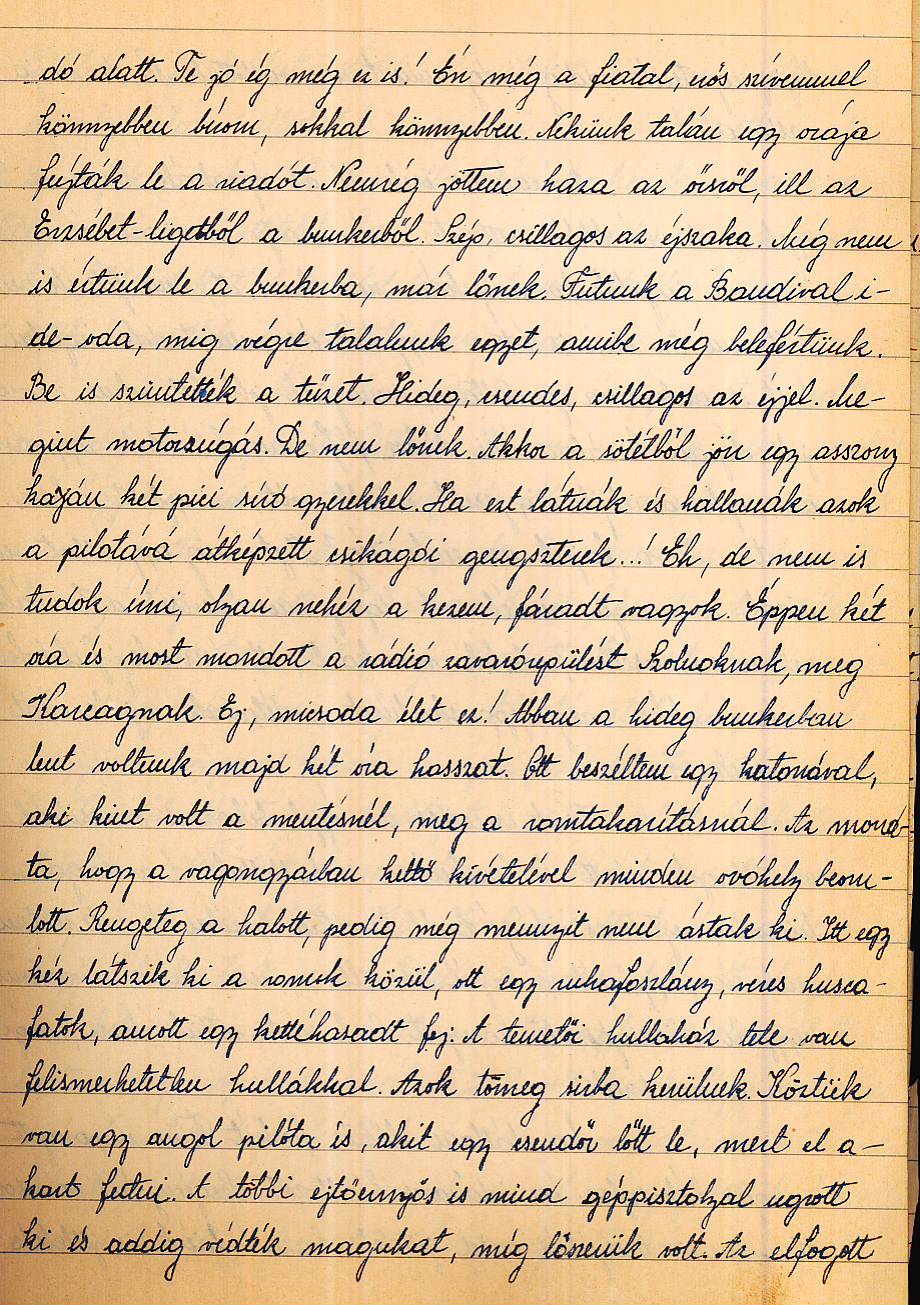 dó alatt. Te jó ég még ez is! Én még a fiatal, erős szívemmel
könnyebben birom, sokkal könnyebben. Nekünk talán egy órája
fujták le a riadót. Nemrég jöttem haza az őrsről, ill az
Erzsébet-ligetből a bunkerből. Szép, csillagos az éjszaka. Még nem
is értünk le a bunkerba, már lőnek. Futunk a Bandival i-
de-oda, mig végre találunk egyet, amibe még belefértünk.
Be is szüntették a tüzet. Hideg, csendes, csillagos az éjjel. Me-
gint motorzúgás. De nem lőnek. Akkor a sötétből jön egy asszony
karján két pici síró gyerekkel. Ha ezt látnák és hallanák azok
a pilótává átképzett csikágói gengszterek..! Eh, de nem is
tudok írni, olyan nehéz a kezem, fáradt vagyok. Éppen két
óra és most mondott a rádió zavarórepülést Szolnoknak, meg
Karcagnak. Ej, micsoda élet ez! Abban a hideg bunkerban
lent voltunk majd két óra hosszat. Ott beszéltem egy katonával,
aki kint volt a mentésnél, meg a romtakarításnál. Az mond-
ta, hogy a vagongyárban kettő kivételével minden óvóhely beom-
lott. Rengeteg a halott, pedig még mennyit nem ástak ki. Itt egy
kéz látszik ki a romok közül, ott egy ruhafoszlány, véres husca-
fatok, amott egy kettéhasadt fej. A temetői hullaház tele van
felismerhetetlen hullákkal. Azok tömeg sírba kerülnek. Köztük
van egy angol pilóta is, akit egy csendőr lőtt le, mert el a-
kart futni. A többi ejtőernyős is mind géppisztolyal ugrott
ki és addig védték magukat, míg lőszerük volt. Az elfogott